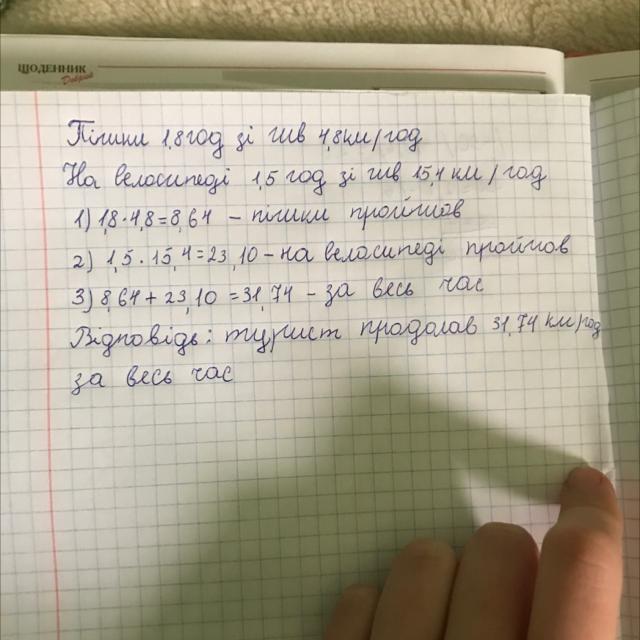 ЩОДЕННИК
Добрий
Пішки 1,8 год зі шв 4,8 км/год
На велосипеді 1,5 год зі шв 15,4 км/год
1) 1,8·4,8=8,64 – пішки пройшов
2) 1,5·15,4=23,10 – на велосипеді пройшов
3) 8,64+23,10=31,74 – за весь час
Відповідь: турист продолав 31,74 км/год
за весь час